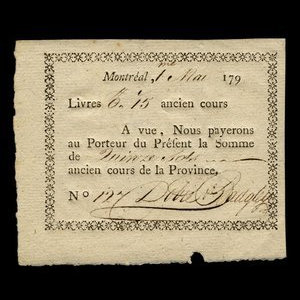 Montréal, 1me Mai 179
Livres 0. 15 ancien cours
A vue, Nous payerons
au Porteur du Préſent la Somme
de Quinze Sols
ancien cours de la Province.
No 127 Dobie & Badgley